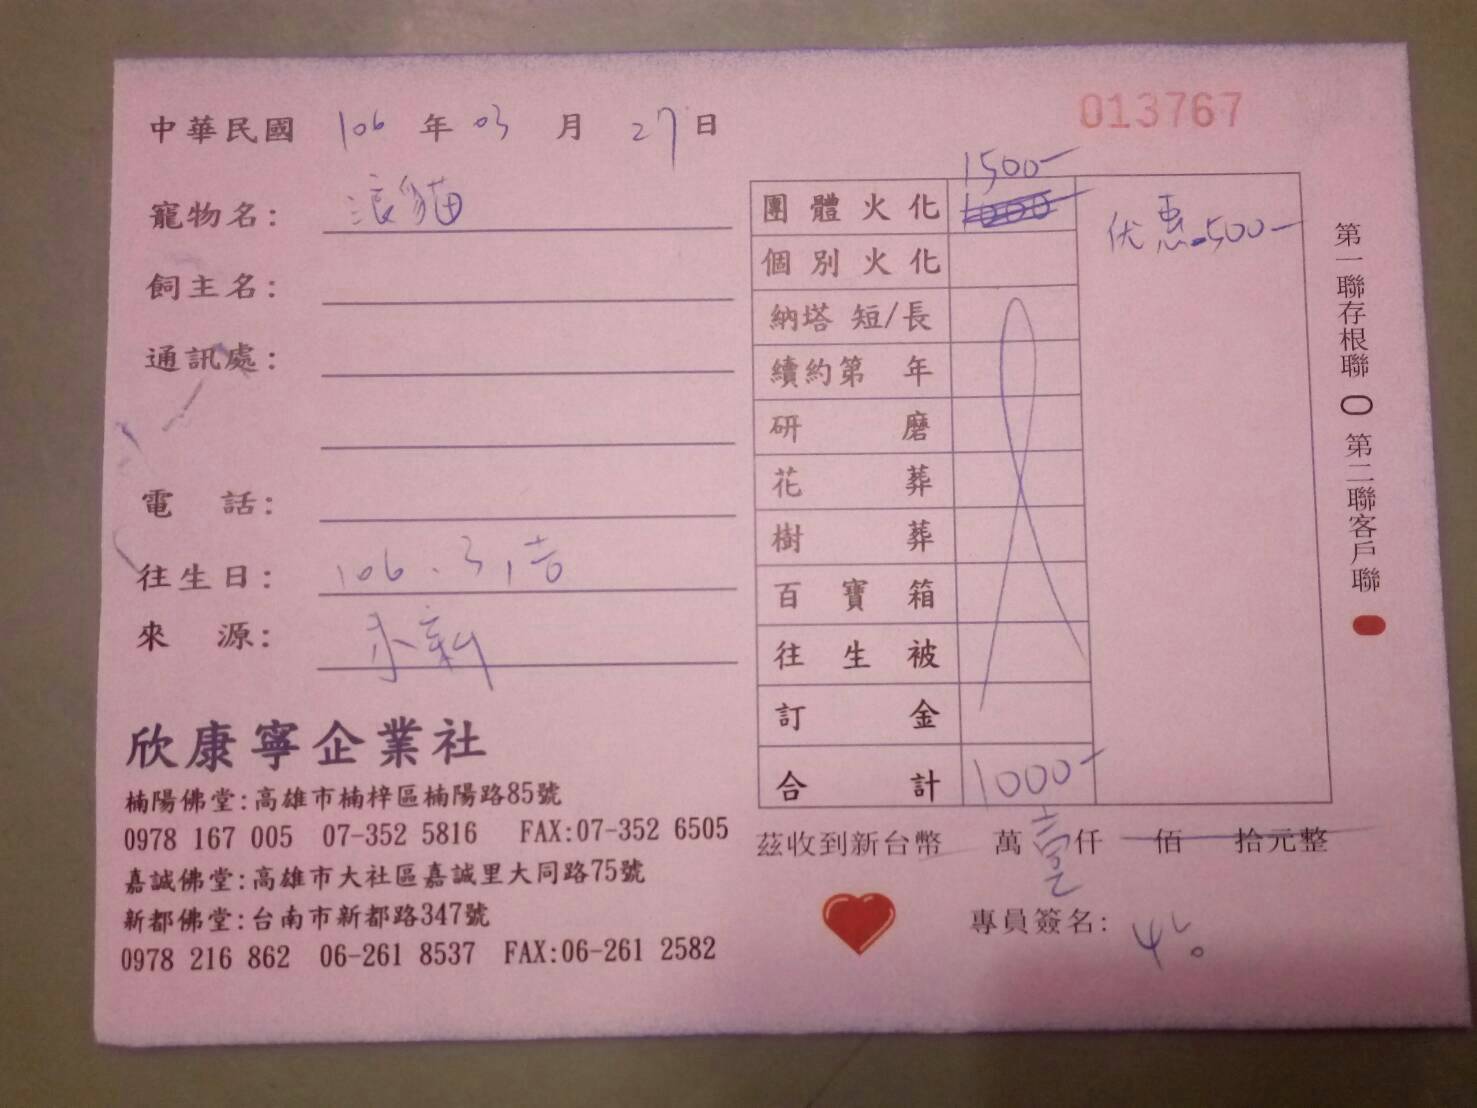 中華民國 106 年 03 月 27 日
013767
寵物名: 浪貓
飼主名:
通訊處:
電 話:
往生日: 106.3,
來 源:
欣康寧企業社
楠陽佛堂:高雄市楠梓區楠陽路85號
0978 167 005 07-352 5816 FAX:07-352 6505
嘉誠佛堂:高雄市大社區嘉誠里大同路75號
新都佛堂:台南市新都路347號
0978 216 862 06-261 8537 FAX:06-261 2582
1500-
團體火化 1000 优惠-500-
個別火化
納塔 短/長
續約第 年
研磨
花葬
樹葬
百寶箱
往生被
訂金
合計 1000-
茲收到新台幣 萬 壹 仟 佰 拾元整
專員簽名:
第一聯存根聯 第二聯客戶聯